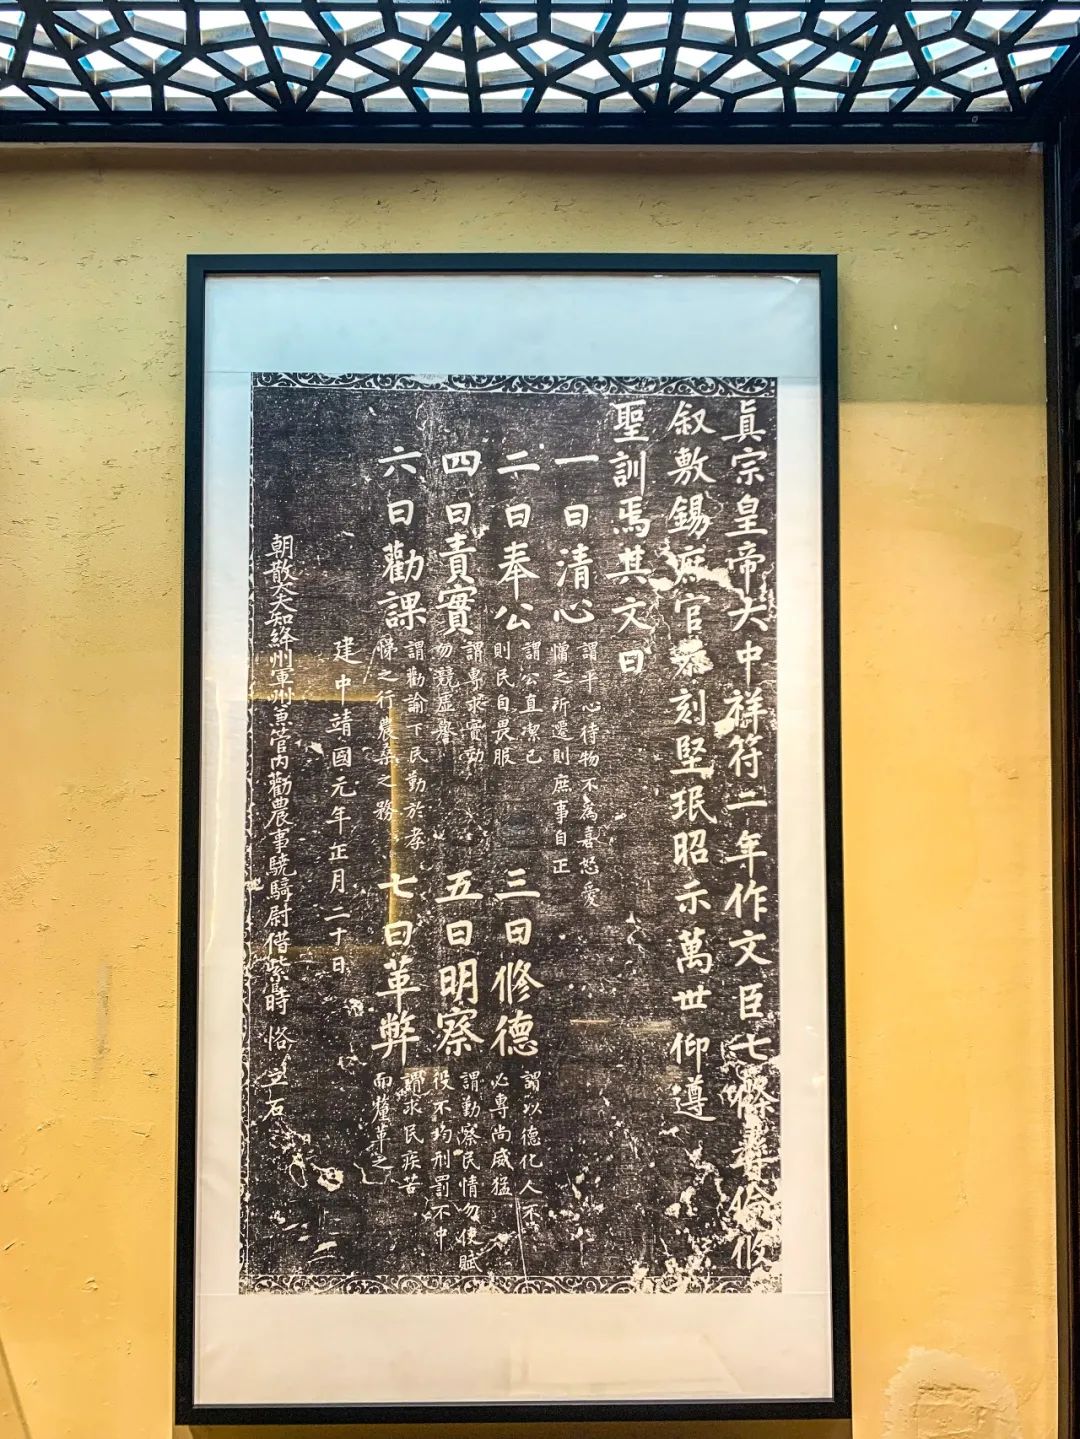 真宗皇帝大中祥符二年作文臣七條彝倫攸
叙敷錫庶官恭刻堅珉昭示萬世仰遵
聖訓焉其文曰
一曰清心
謂平心待物不為喜怒愛
憎之所遷則庶事自正
二曰奉公
謂公直潔己
則民自畏服
三曰修德
謂以德化人不
必專尚威猛
四曰責實
謂專求實効
勿競虛譽
五曰明察
謂勤察民情勿使賦
役不均刑罰不中
六曰勸課
謂勸諭下民勤於孝
悌之行農桑之務
七曰革弊
謂求民疾苦
而釐革之
建中靖國元年正月二十日
朝散大夫知絳州軍州兼管內勸農事驍騎尉借紫時恪立石